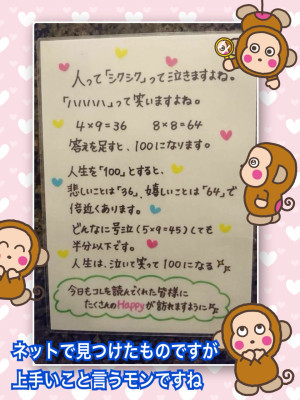 人って「シクシク」って泣きますよね。
「ハハハハ」って笑いますよね。
4×9=36　8×8=64
答えを足すと、100になります。
人生を「100」とすると、
悲しいことは「36」、嬉しいことは「64」で
倍近くあります。
どんなに号泣(5×9=45)しても
半分以下です。
人生は、泣いて笑って100になる
今日もコレを読んでくれた皆様に
たくさんのHappyが訪れますように
ネットで見つけたものですが
上手いこと言うモンですね